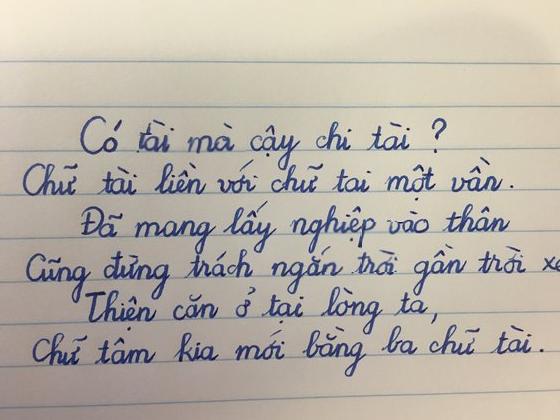 Có tài mà cậy chi tài ?
Chữ tài liền với chữ tai một vần.
Đã mang lấy nghiệp vào thân
Cũng đừng trách ngắn trời gần trời
Thiện căn ở tại lòng ta,
Chữ tâm kia mới bằng ba chữ tài.